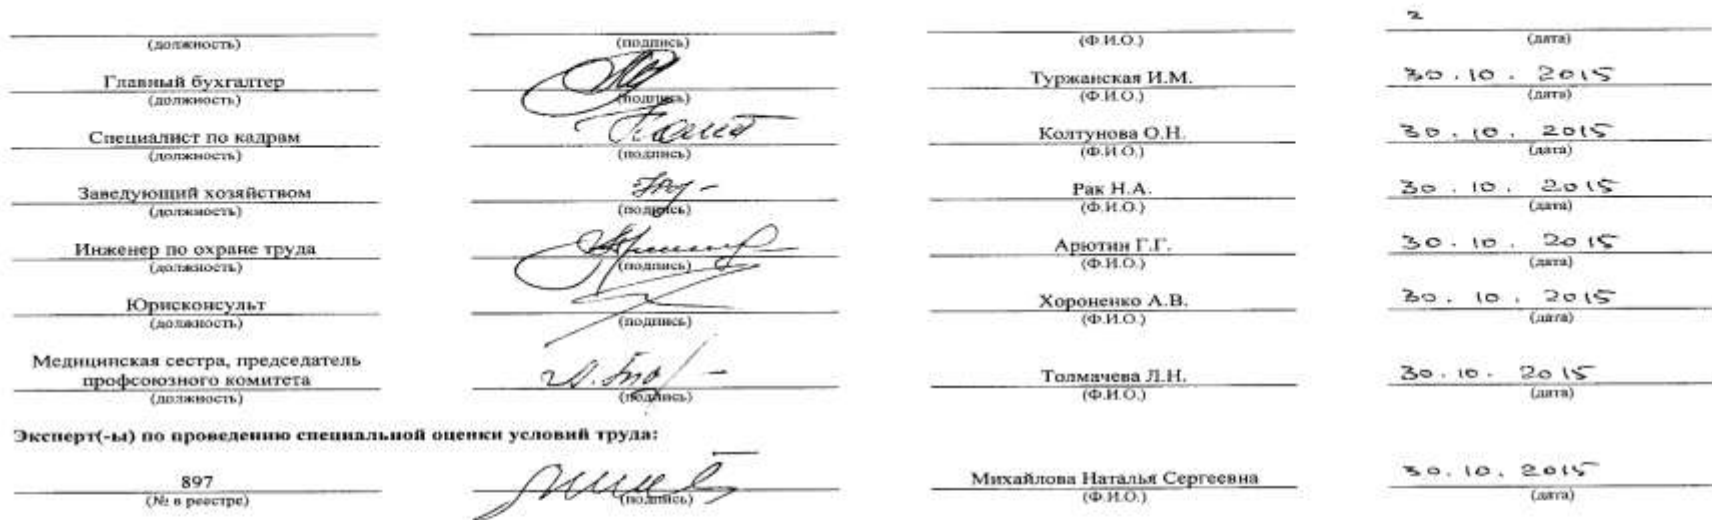 2
(должность) (подпись) (Ф.И.О.) (дата)
Главный бухгалтер Туржанская И.М. 30.10.2015
(должность) (подпись) (Ф.И.О.) (дата)
Специалист по кадрам Колтунова О.Н. 30.10.2015
(должность) (подпись) (Ф.И.О.) (дата)
Заведующий хозяйством Рак Н.А. 30.10.2015
(должность) (подпись) (Ф.И.О.) (дата)
Инженер по охране труда Арютин Г.Г. 30.10.2015
(должность) (подпись) (Ф.И.О.) (дата)
Юрисконсульт Хороненко А.В. 30.10.2015
(должность) (подпись) (Ф.И.О.) (дата)
Медицинская сестра, председатель
профсоюзного комитета Толмачева Л.Н. 30.10.2015
(должность) (подпись) (Ф.И.О.) (дата)
Эксперт(-ы) по проведению специальной оценки условий труда:
897 Михайлова Наталья Сергеевна 30.10.2015
(№ в реестре) (подпись) (Ф.И.О.) (дата)